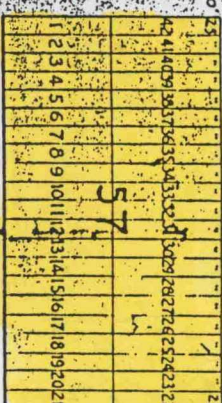 42 41 40 39 38 37 36 35 34 33 32 31 30 29 28 27 26 25 24 23
57
1 2 3 4 5 6 7 8 9 10 11 12 13 14 15 16 17 18 19 20